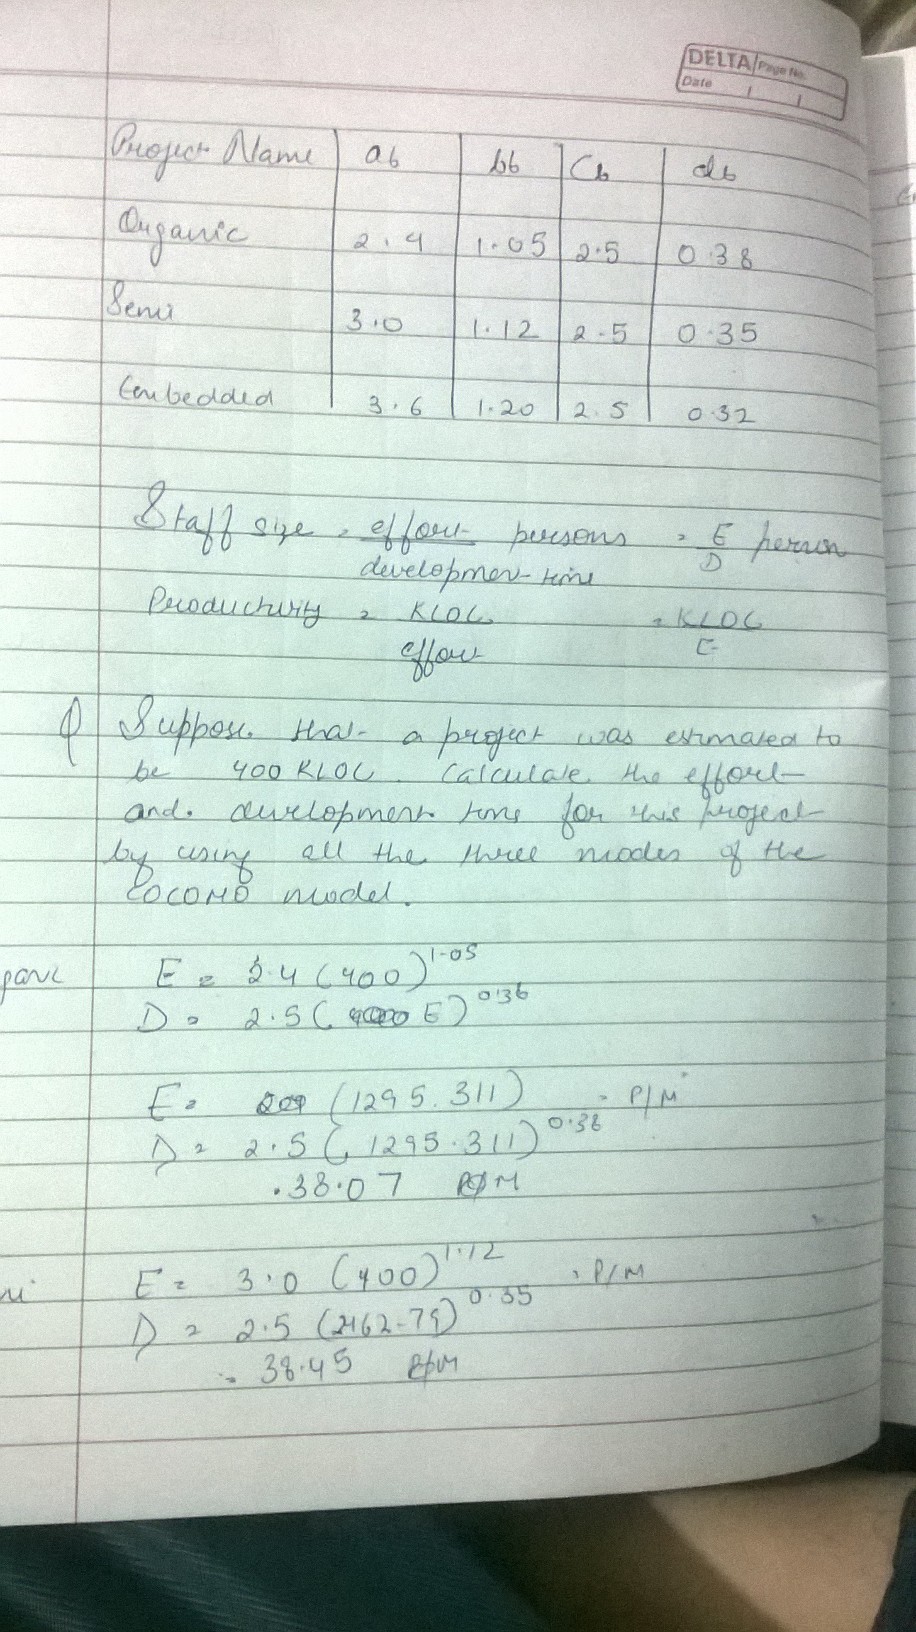 DELTA Page No.
Date / /
Project Name ab bb Cb db
Organic 2.4 1.05 2.5 0.38
Semi 3.0 1.12 2.5 0.35
Embedded 3.6 1.20 2.5 0.32
Staff size = effort persons = E person
development time D
Productivity = KLOC = KLOC
effort E
Q Suppose that a project was estimated to
be 400 KLOC. Calculate the effort
and development time for this project
by using all the three modes of the
COCOMO model.
E = 2.4 (400)^1.05
D = 2.5 (E)^0.38
E = (1295.311) = P/M
D = 2.5 (1295.311)^0.38
= 38.07 M
E = 3.0 (400)^1.12 = P/M
D = 2.5 (2462.79)^0.35
= 38.45 M